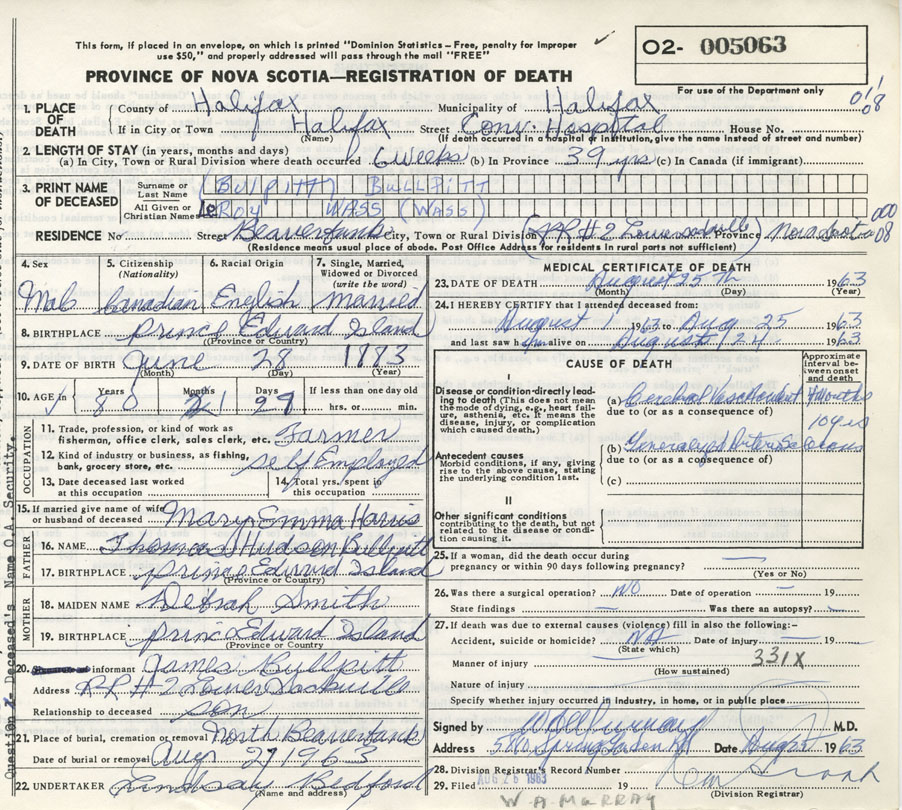 This form, if placed in an envelope, on which is printed "Dominion Statistics – Free, penalty for improper
use $50," and properly addressed will pass through the mail "FREE"
O2- 005063
PROVINCE OF NOVA SCOTIA—REGISTRATION OF DEATH
For use of the Department only
1. PLACE OF DEATH County of Halifax Municipality of Halifax
If in City or Town Halifax Street Conv. Hospital House No.
(Name) (If death occurred in a hospital or institution, give the name instead of street and number)
2. LENGTH OF STAY (in years, months and days)
(a) In City, Town or Rural Division where death occurred 6 weeks (b) In Province 39 yrs (c) In Canada (if immigrant)
3. PRINT NAME OF DECEASED Surname or Last Name (BULPITT) BULLPITT
All Given or Christian Names ROY WASS (WASS)
RESIDENCE No Street Beaverbank City, Town or Rural Division (RR#2 Lower Sackville) Province Nova Scotia
(Residence means usual place of abode. Post Office Address for residents in rural parts not sufficient)
000
08
4. Sex 5. Citizenship (Nationality) 6. Racial Origin 7. Single, Married, Widowed or Divorced (write the word)
Male Canadian English married
8. BIRTHPLACE Prince Edward Island
(Province or Country)
9. DATE OF BIRTH June 28 1883
(Month) (Day) (Year)
10. AGE in Years Months Days If less than one day old
80 1 29 hrs. or min.
OCCUPATION
11. Trade, profession or kind of work as
fisherman, office clerk, sales clerk, etc. Farmer
12. Kind of industry or business, as fishing,
bank, grocery store, etc. self Employed
13. Date deceased last worked
at this occupation
14. Total yrs. spent in
this occupation
15. If married give name of wife
or husband of deceased Mary Emma Harris
FATHER
16. NAME Thomas Hudson Bullpitt
17. BIRTHPLACE Prince Edward Island
(Province or Country)
MOTHER
18. MAIDEN NAME Debrah Smith
19. BIRTHPLACE Prince Edward Island
(Province or Country)
20. informant James Bullpitt
Address RR #2 Lower Sackville
Relationship to deceased son
21. Place of burial, cremation or removal North Beaverbank
Date of burial or removal Aug 27 1963
22. UNDERTAKER Lindsay Bedford
(Name and address)
Question Deceased's Name O.A. Security.
MEDICAL CERTIFICATE OF DEATH
23. DATE OF DEATH August 25th 1963
(Month) (Day) (Year)
24. I HEREBY CERTIFY that I attended deceased from:
August 1 1963 to Aug 25 1963
and last saw him alive on August 24 1963
CAUSE OF DEATH
Approximate interval between onset and death
I
Disease or condition directly leading to death (This does not mean the mode of dying, e.g., heart failure, asthenia, etc. It means the disease, injury, or complication which caused death.)
(a) Cerebral Vasc Accident months
due to (or as a consequence of)
10 yrs
Antecedent causes
Morbid conditions, if any, giving rise to the above cause, stating the underlying condition last.
(b) Generalized
due to (or as a consequence of)
(c)
II
Other significant conditions
contributing to the death, but not related to the disease or condition causing it.
25. If a woman, did the death occur during
pregnancy or within 90 days following pregnancy?
(Yes or No)
26. Was there a surgical operation? NO Date of operation – 19
State findings – Was there an autopsy?
27. If death was due to external causes (violence) fill in also the following:–
Accident, suicide or homicide? Date of injury – 19
(State which)
331X
Manner of injury
(How sustained)
Nature of injury
Specify whether injury occurred in industry, in home, or in public place
Signed by M.D.
Address Spring Garden Rd Date 1963
28. Division Registrar's Record Number
29. Filed AUG 26 1963 19
(Division Registrar)
W. A. MURRAY